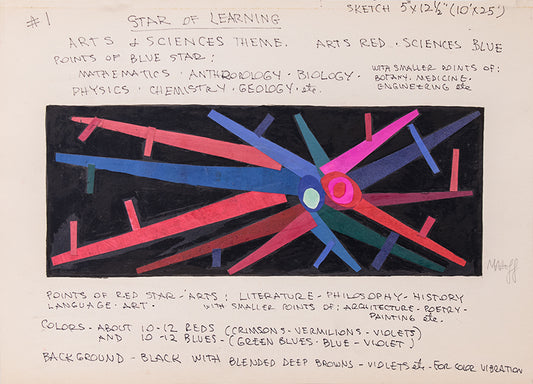 #1
STAR OF LEARNING
SKETCH 5"x12½" (10'x25')
ARTS & SCIENCES THEME. ARTS RED · SCIENCES BLUE
POINTS OF BLUE STAR:
MATHEMATICS · ANTHROPOLOGY · BIOLOGY ·
PHYSICS · CHEMISTRY · GEOLOGY · etc.
WITH SMALLER POINTS OF:
BOTANY, MEDICINE ·
ENGINEERING etc
POINTS OF RED STAR - ARTS: LITERATURE - PHILOSOPHY - HISTORY
LANGUAGE · ART. WITH SMALLER POINTS OF: ARCHITECTURE - POETRY -
PAINTING etc.
COLORS - ABOUT 10-12 REDS (CRIMSONS - VERMILIONS - VIOLETS)
AND 10-12 BLUES - (GREEN BLUES - BLUE - VIOLET)
BACKGROUND - BLACK WITH BLENDED DEEP BROWNS - VIOLETS etc - FOR COLOR VIBRATION